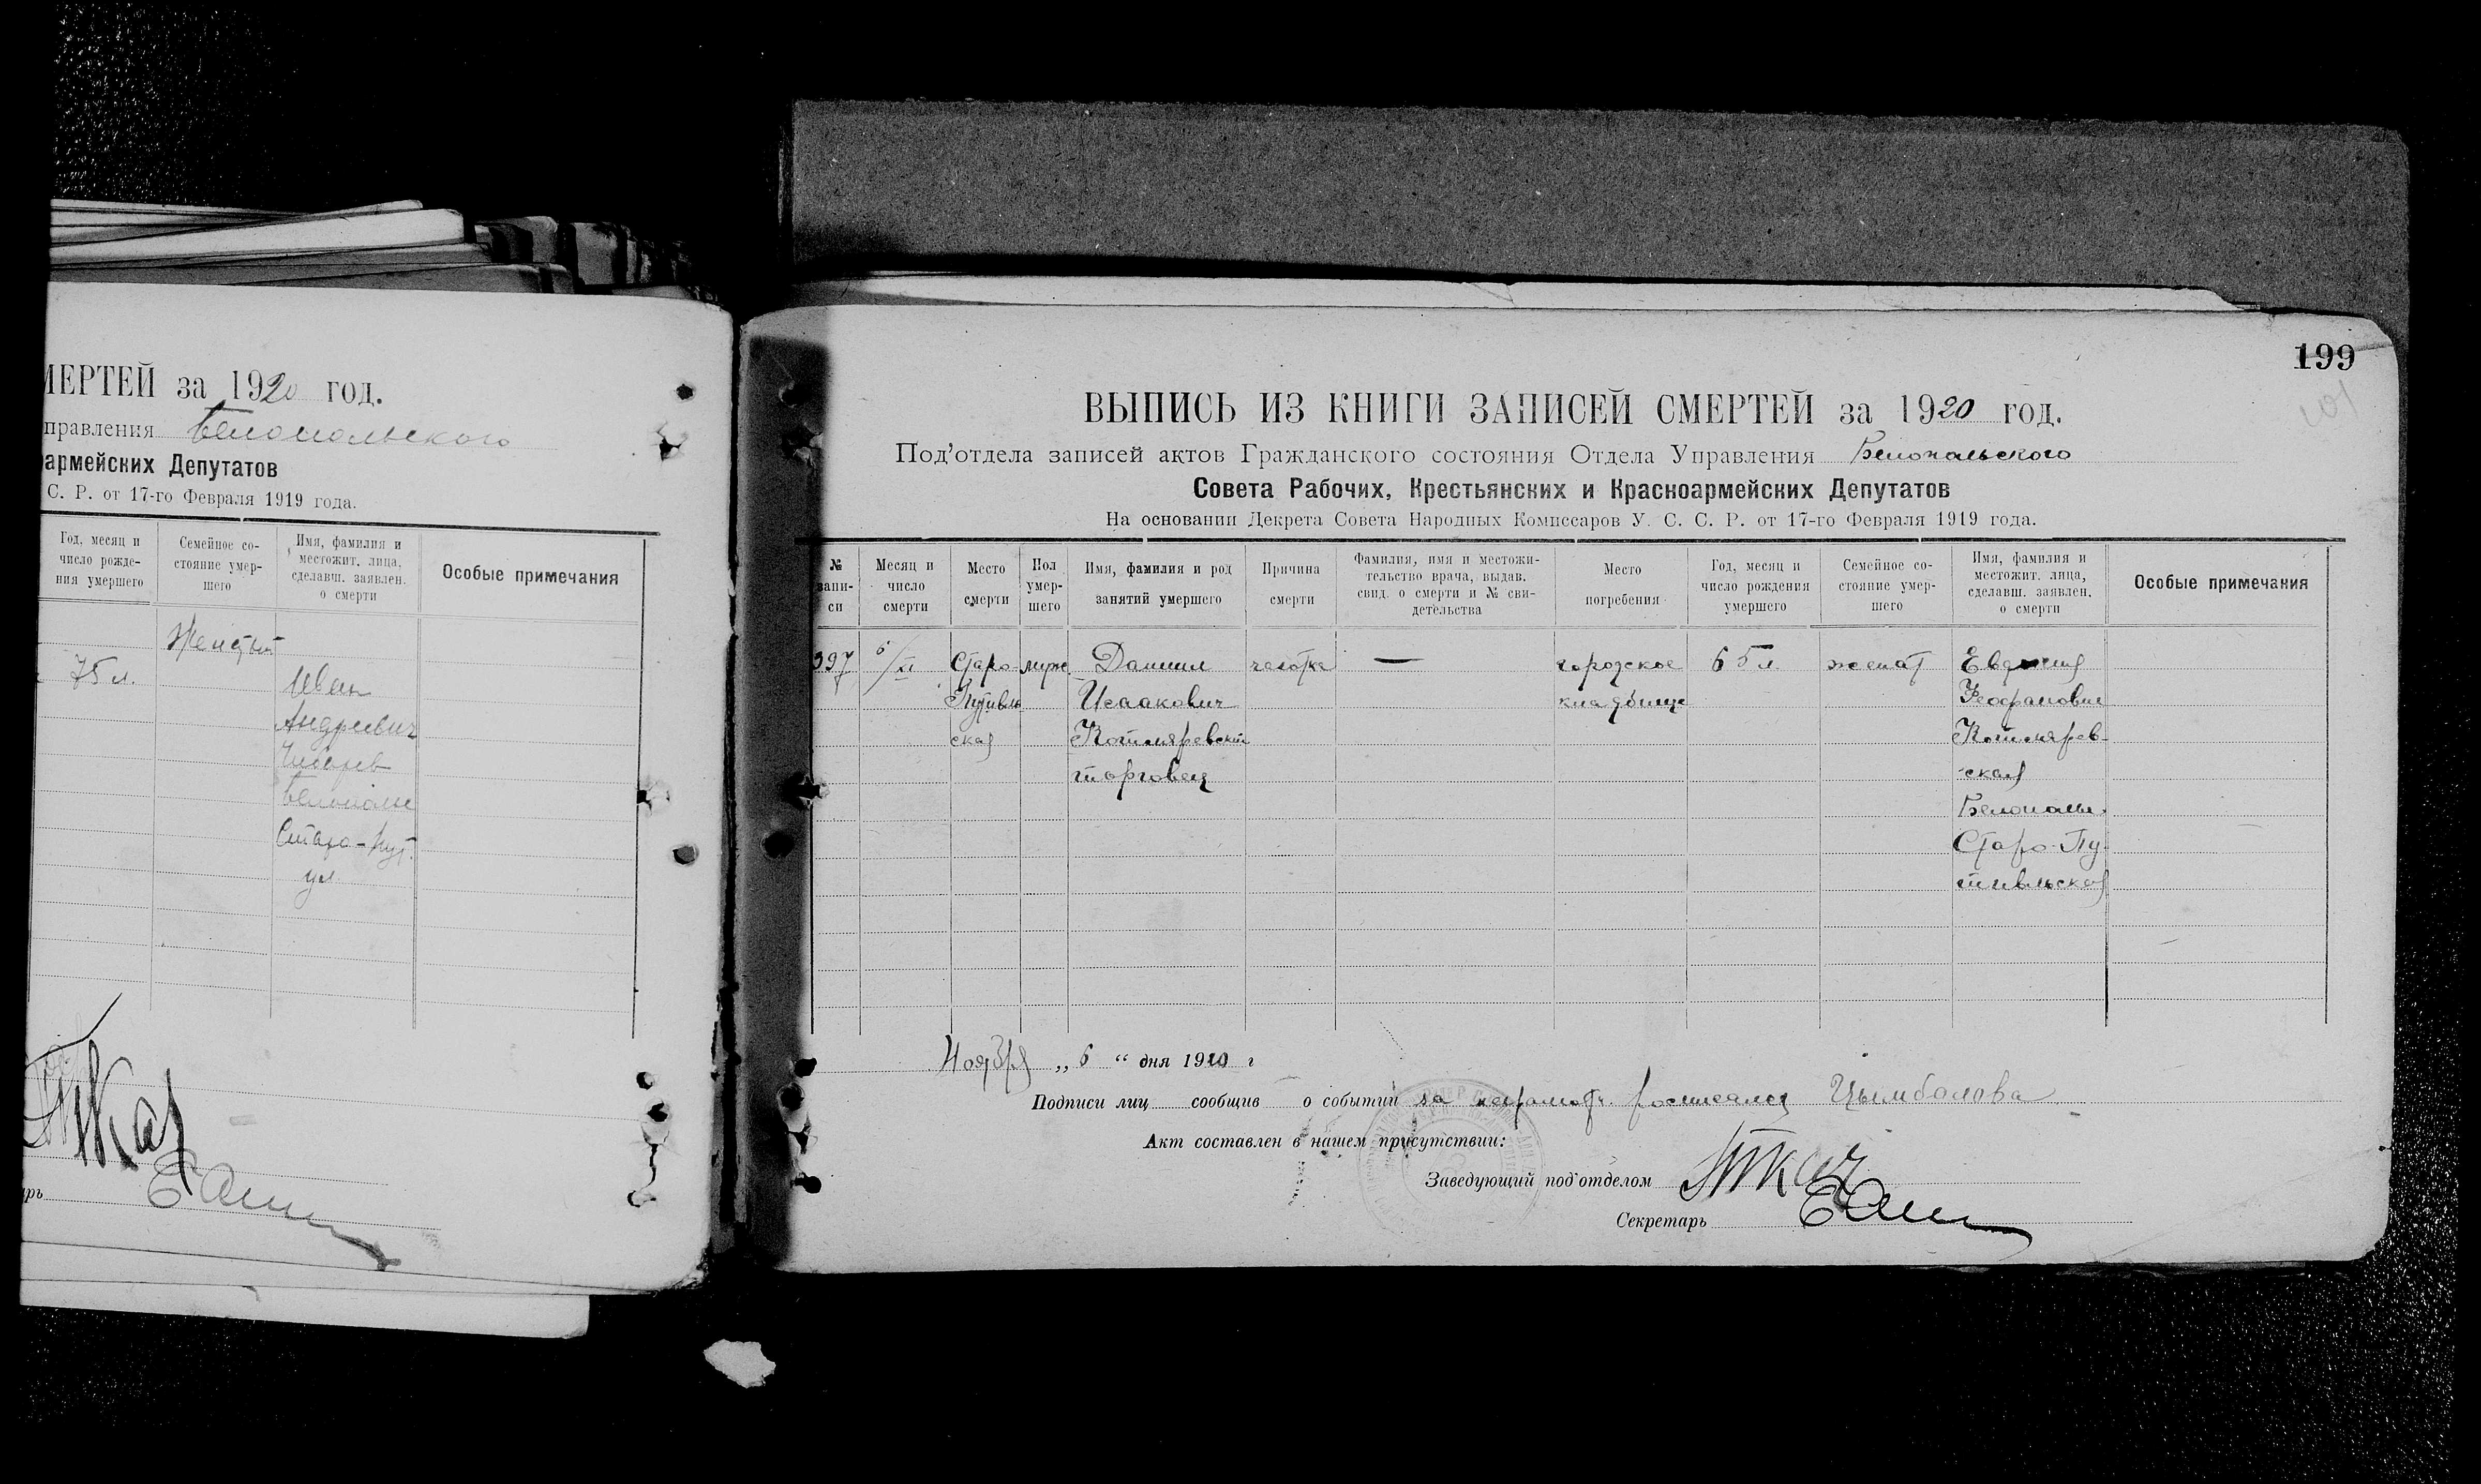 МЕРТЕЙ за 1920 год.
правления Белопольского
армейских Депутатов
С. Р. от 17-го Февраля 1919 года.
Год, месяц и число рожде- ния умершего
Семейное со- стояние умер- шего
Имя, фамилия и местожит. лица, сделавш. заявлен. о смерти
Особые примечания
75 л.
Иван
Андреевич
Белополье
Старо-Пут.
ул.
Ткач
арь
199
ВЫПИСЬ ИЗ КНИГИ ЗАПИСЕЙ СМЕРТЕЙ за 1920 год.
Под'отдела записей актов Гражданского состояния Отдела Управления Белопольского
Совета Рабочих, Крестьянских и Красноармейских Депутатов
На основании Декрета Совета Народных Комиссаров У. С. С. Р. от 17-го Февраля 1919 года.
№ запи- си
Месяц и число смерти
Место смерти
Пол умер- шего
Имя, фамилия и род занятий умершего
Причина смерти
Фамилия, имя и местожи- тельство врача, выдав. свид. о смерти и № сви- детельства
Место погребения
Год, месяц и число рождения умершего
Семейное со- стояние умер- шего
Имя, фамилия и местожит. лица, сделавш. заявлен. о смерти
Особые примечания
397 6/XI Старо- муж. Даниил чахотка — городское 65 л. женат
Путивль Исаакович кладбище Феофановна
ская Котляревский Котлярев-
торговец ская
Белополье
Старо-Пу
тивльская
Ноября „ 6 “ дня 1920 г
Подписи лиц сообщив о событии за неграмотн. росписался Цымбалова
Акт составлен в нашем присутствии:
Заведующий под'отделом Ткач
Секретарь